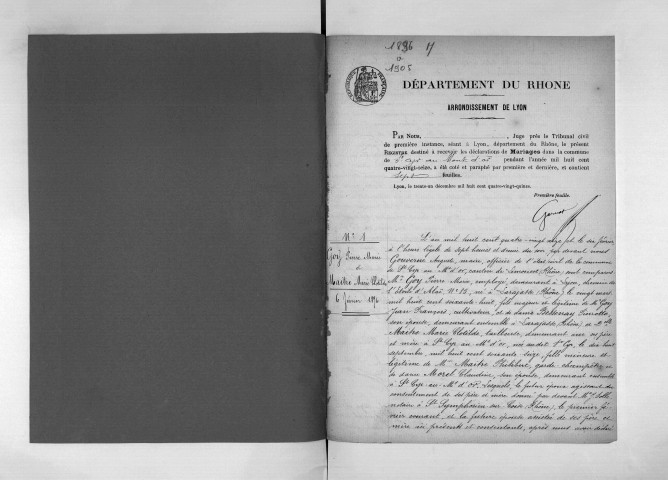 1896
à
1905
DÉPARTEMENT DU RHONE
ARRONDISSEMENT DE LYON
PAR NOUS, , Juge près le Tribunal civil
de première instance, séant à Lyon, département du Rhône, le présent
REGISTRE destiné à recevoir les déclarations de Mariages dans la commune
de St Cyr au Mont d'or pendant l'année mil huit cent
quatre-vingt-seize, a été coté et paraphé par première et dernière, et contient
sept feuilles.
Lyon, le trente-un décembre mil huit cent quatre-vingt-quinze.
Première feuille.
No 1
Goy Pierre Marie
&
Maitre Marie Clotilde
6 février 1896
L'an mil huit cent quatre vingt seize et le six février
à l'heure légale de sept heures et demie du soir par devant nous
Gouverne Auguste, maire, officier de l'état civil de la commune
de St Cyr au Mt d'or, canton de Limonest, Rhône, ont comparu
Mr Goy Pierre Marie, employé, demeurant à Lyon, chemin de
l'étoile d'Alaï No 25, né à Larajasse (Rhône) le vingt
mil huit cent soixante huit, fils majeur et légitime de Mr Goy
Jean François, cultivateur, et de dame Pierrette,
son épouse, demeurant ensemble à Larajasse, Rhône; et Dlle
Maitre Marie Clotilde, tailleuse, demeurant avec ses père
et mère à St Cyr au Mt d'or, née audit St Cyr, le dix huit
septembre mil huit cent soixante seize, fille mineure et
légitime de Mr Maitre Philibert, garde champêtre, et
de dame Morel Claudine, son épouse, demeurant ensemble
à St Cyr au Mt d'or. Lesquels, le futur époux agissant du
consentement de ses père et mère donné par devant Mr
notaire à St Symphorien sur Coise (Rhône), le premier fé-
vrier courant, et la future épouse assistée de ses père et
mère ici présents et consentants, après nous avoir déclaré